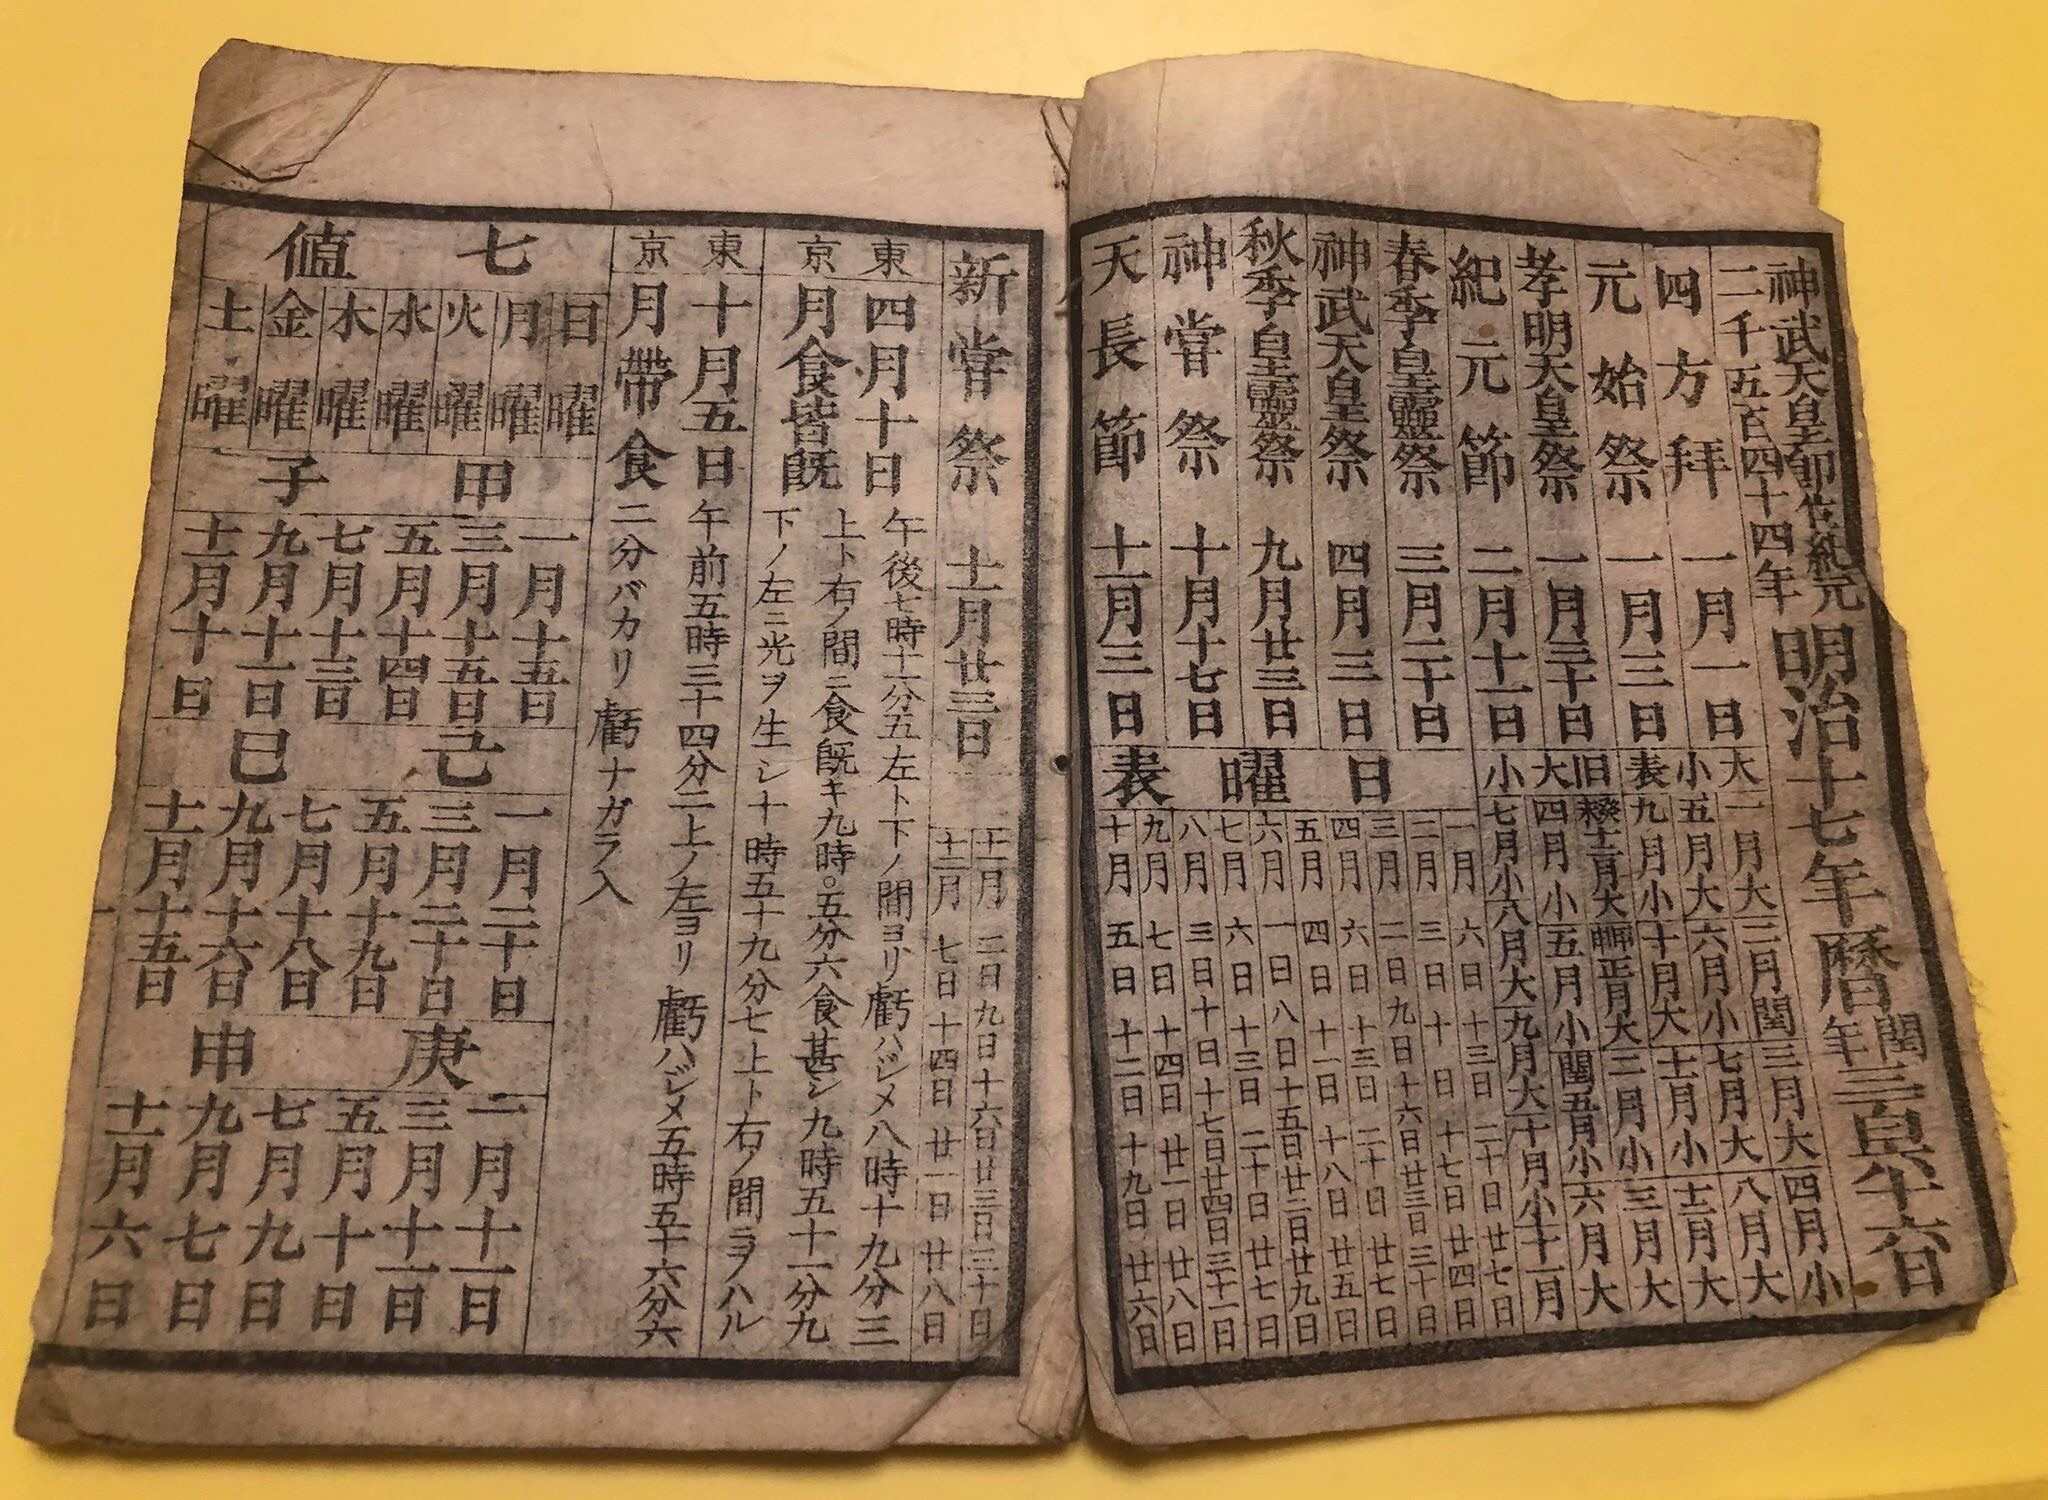 神武天皇即位紀元
二千五百四十四年
明治十七年暦
閏年
三百六十六日
四方拝 一月一日
元始祭 一月三日
孝明天皇祭 一月三十日
紀元節 二月十一日
春季皇霊祭 三月二十日
神武天皇祭 四月三日
秋季皇霊祭 九月廿三日
神嘗祭 十月十七日
天長節 十一月三日
大小表
一月大 二月閏 三月大 四月小
五月大 六月小 七月大 八月大
九月小 十月大 十一月小 十二月大
旧大小
十二月大 正月大 二月小 三月大
四月小 五月小 閏五月小 六月大
七月小 八月大 九月大 十月小 十一月
日曜表
一月 六日 十三日 二十日 廿七日
二月 三日 十日 十七日 廿四日
三月 二日 九日 十六日 廿三日 三十日
四月 六日 十三日 二十日 廿七日
五月 四日 十一日 十八日 廿五日
六月 一日 八日 十五日 廿二日 廿九日
七月 六日 十三日 二十日 廿七日
八月 三日 十日 十七日 廿四日 三十一日
九月 七日 十四日 廿一日 廿八日
十月 五日 十二日 十九日 廿六日
新嘗祭 十一月廿三日
十一月 二日 九日 十六日 廿三日 三十日
十二月 七日 十四日 廿一日 廿八日
東京
四月十日
月食皆既
午後七時十一分五左ト下ノ間ヨリ虧ハジメ八時十九分三
上ト右ノ間ニ食既キ九時〇五分六食甚シ九時五十一分九
下ノ左ニ光ヲ生シ十時五十九分七上ト右ノ間ニヲハル
東京
十月五日
月帯食
午前五時三十四分二上ノ左ヨリ虧ハジメ五時五十六分六
二分バカリ虧ナガラ入
七値
日曜 月曜 火曜 水曜 木曜 金曜 土曜
甲子
一月十五日 三月十五日 五月十四日 七月十三日 九月十一日 十一月十日
己巳
一月二十日 三月二十日 五月十九日 七月十八日 九月十六日 十一月十五日
庚申
一月十一日 三月十一日 五月十日 七月九日 九月七日 十一月六日